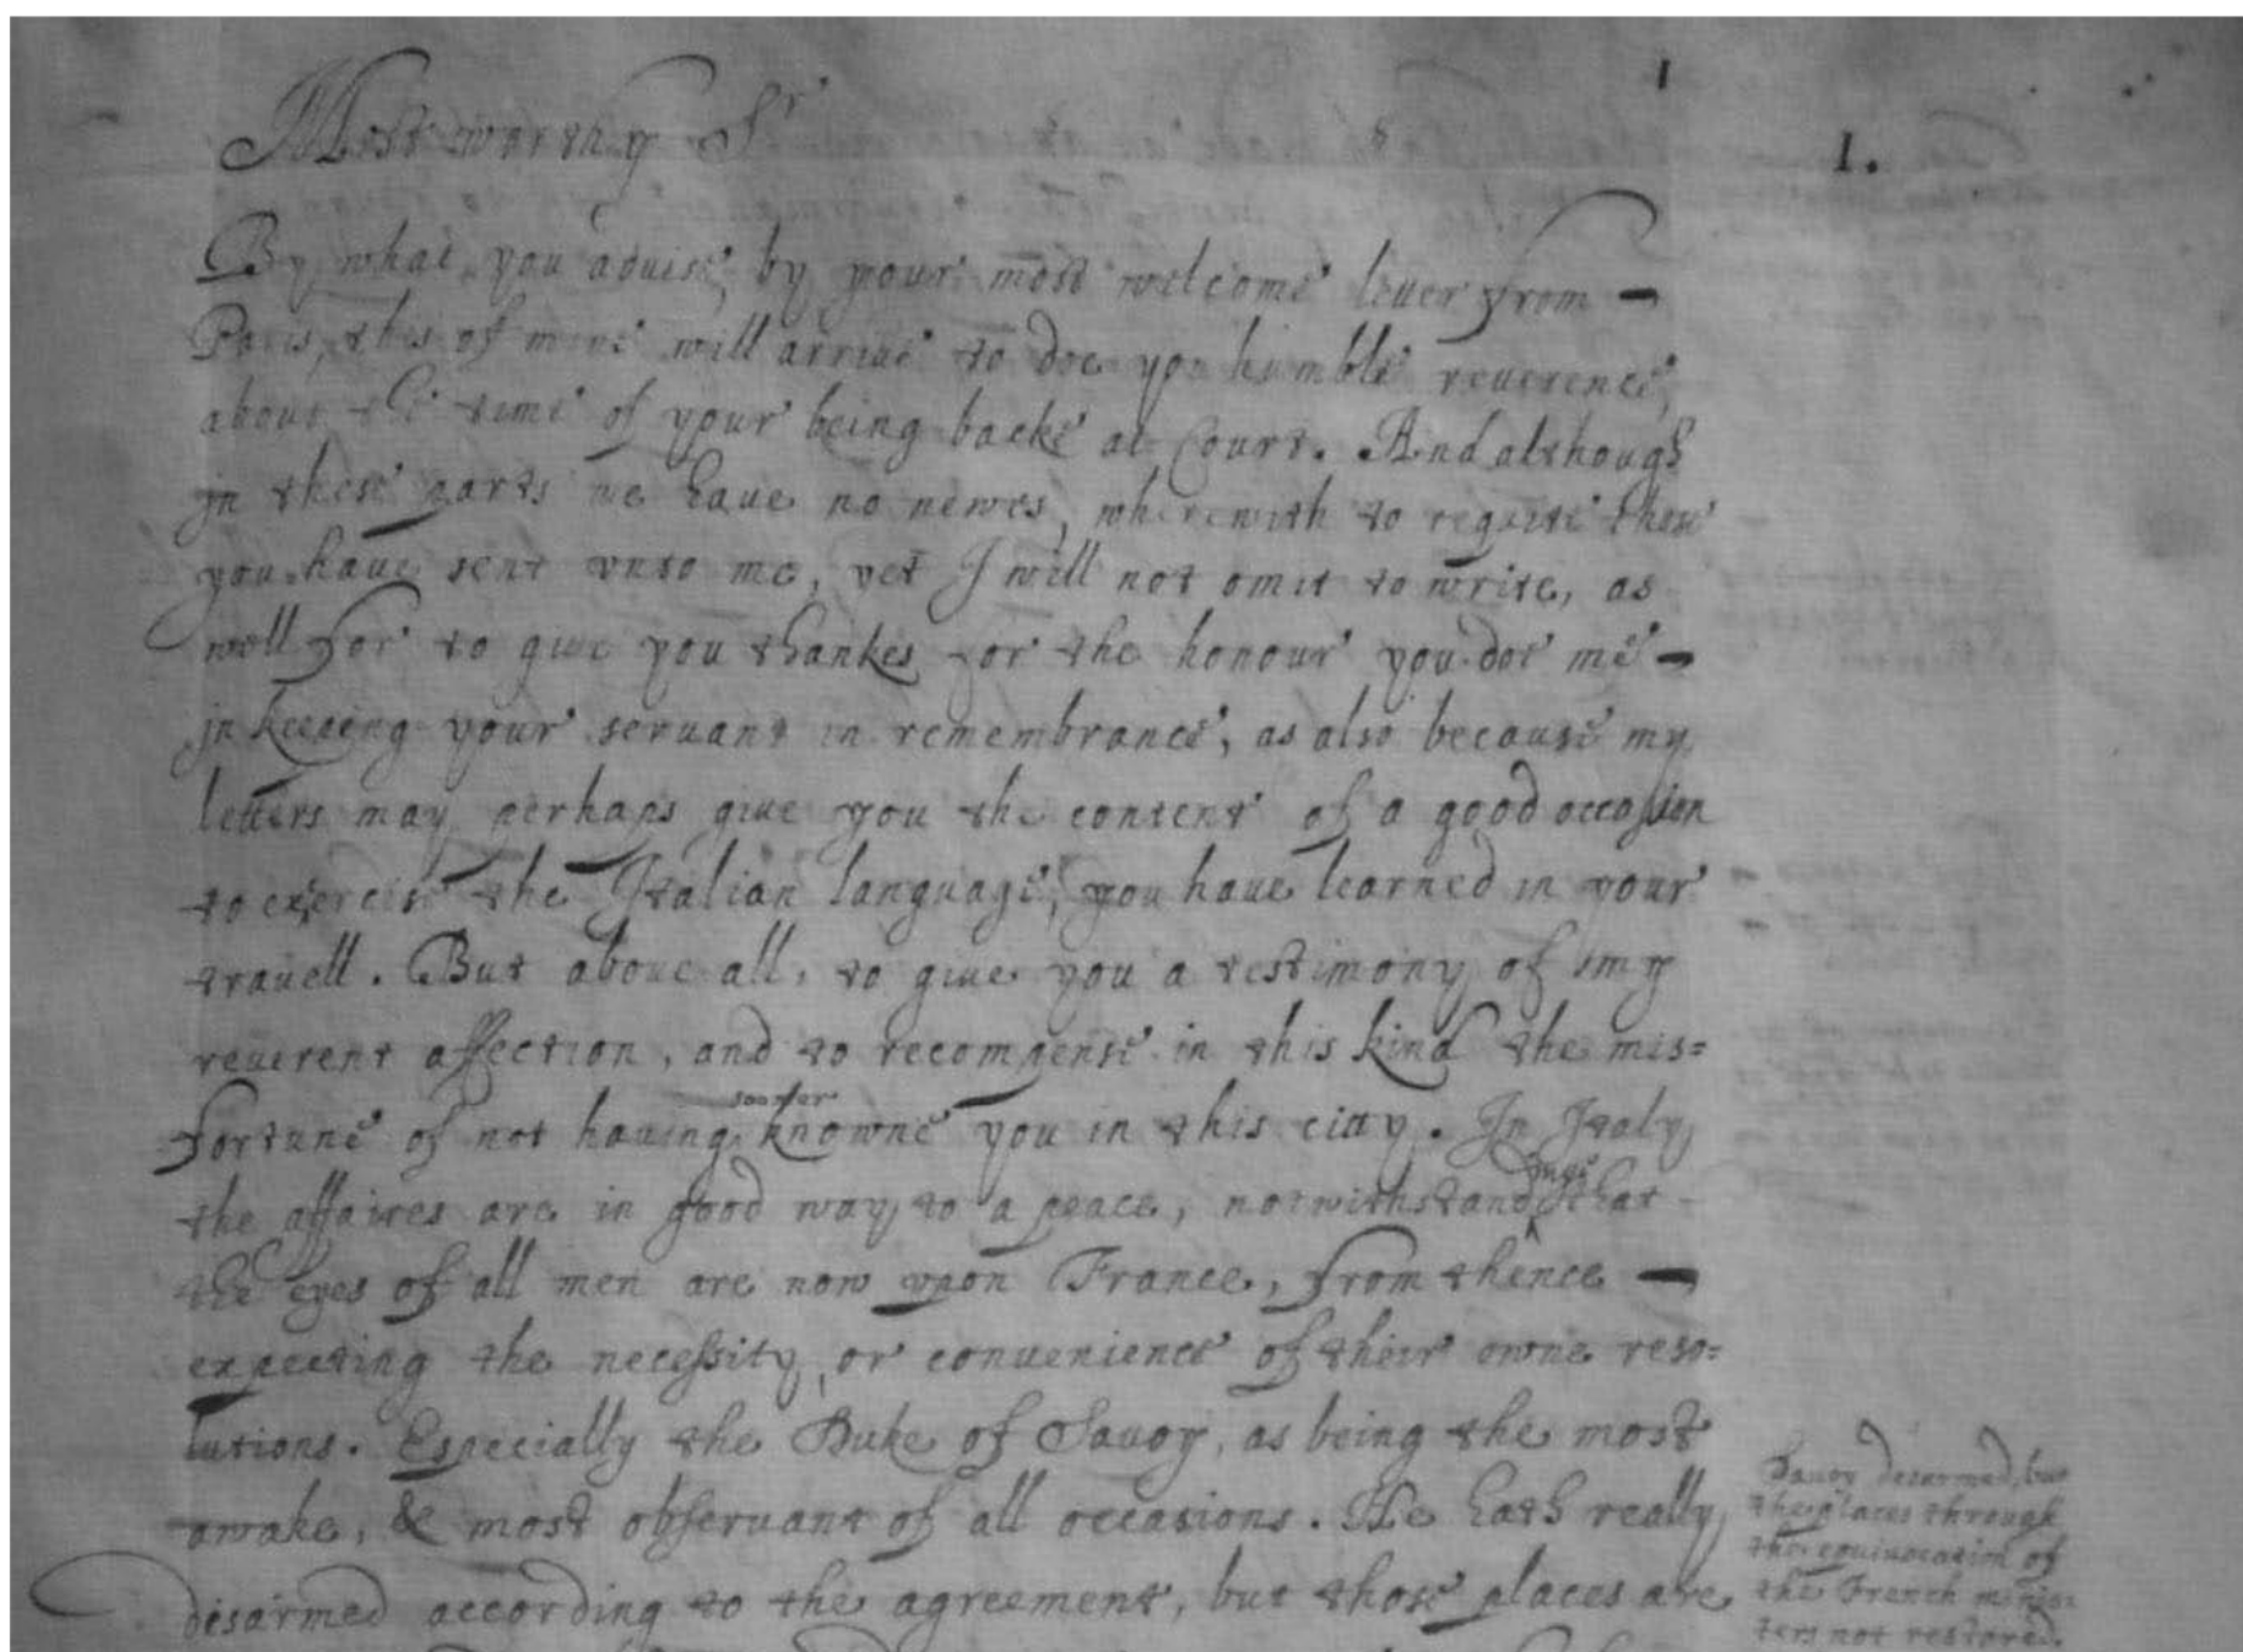 1
Most worthy Sr
1.
By what you aduise, by your most welcome letter from -
Paris, this of mine will arriue to doe you humble reuerence,
about the time of your being backe at Court. And although
in these parts we haue no newes, wherewith to requite those
you haue sent vnto me, yet I will not omit to write, as
well for to giue you thankes for the honour you doe me -
in keeping your seruant in remembrance, as also because my
letters may perhaps giue you the content of a good occasion
to exercise the Italian language, you haue learned in your
trauell. But aboue all, to giue you a testimony of my
reuerent affection, and to recompense in this kind the mis=
sooner
fortune of not hauing knowne you in this citty. In Italy
inge
the affaires are in good way to a peace, notwithstand that -
the eyes of all men are now vpon France, from thence -
expecting the necessity, or conuenience of their owne reso=
lutions. Especially the Duke of Sauoy, as being the most
awake, & most obseruant of all occasions. He hath really
disarmed according to the agreement, but those places are
Sauoy disarmed, but
the places through
the equiuocation of
the French minis=
ters not restored